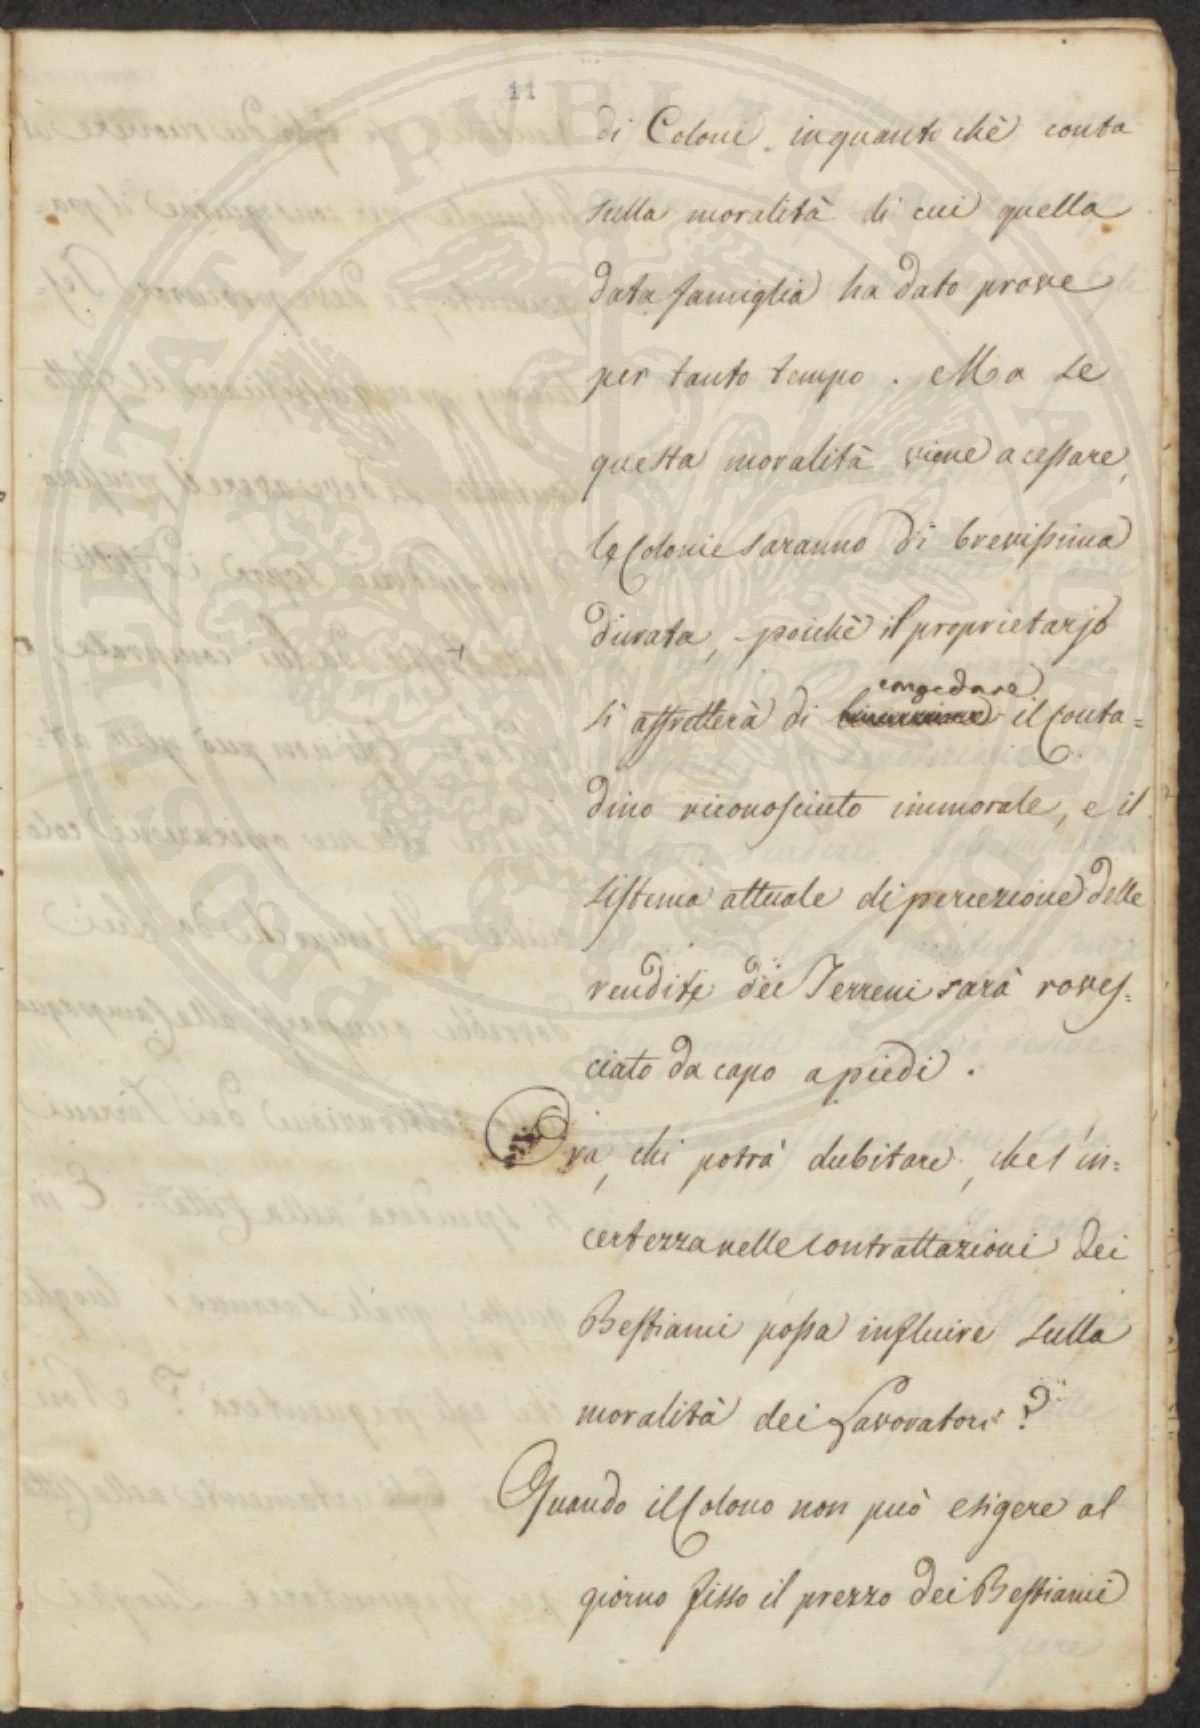 11
di Coloni, inquanto chè conta
sulla moralità di cui quella
data famiglia ha dato prove
per tanto tempo. Ma se
questa moralità viene a cessare,
le Colonie saranno di brevissima
durata, poichè il proprietarjo
congedare
si affretterà di il Conta=
dino riconosciuto immorale, e il
sistema attuale di percezione delle
rendite dei Terreni sarà roves=
ciato da capo a piedi.
Ora, chi potrà dubitare, che l'in=
certezza nelle contrattazioni dei
Bestiami possa influire sulla
moralità dei Lavoratori?
Quando il Colono non può esigere al
giorno fisso il prezzo dei Bestiami